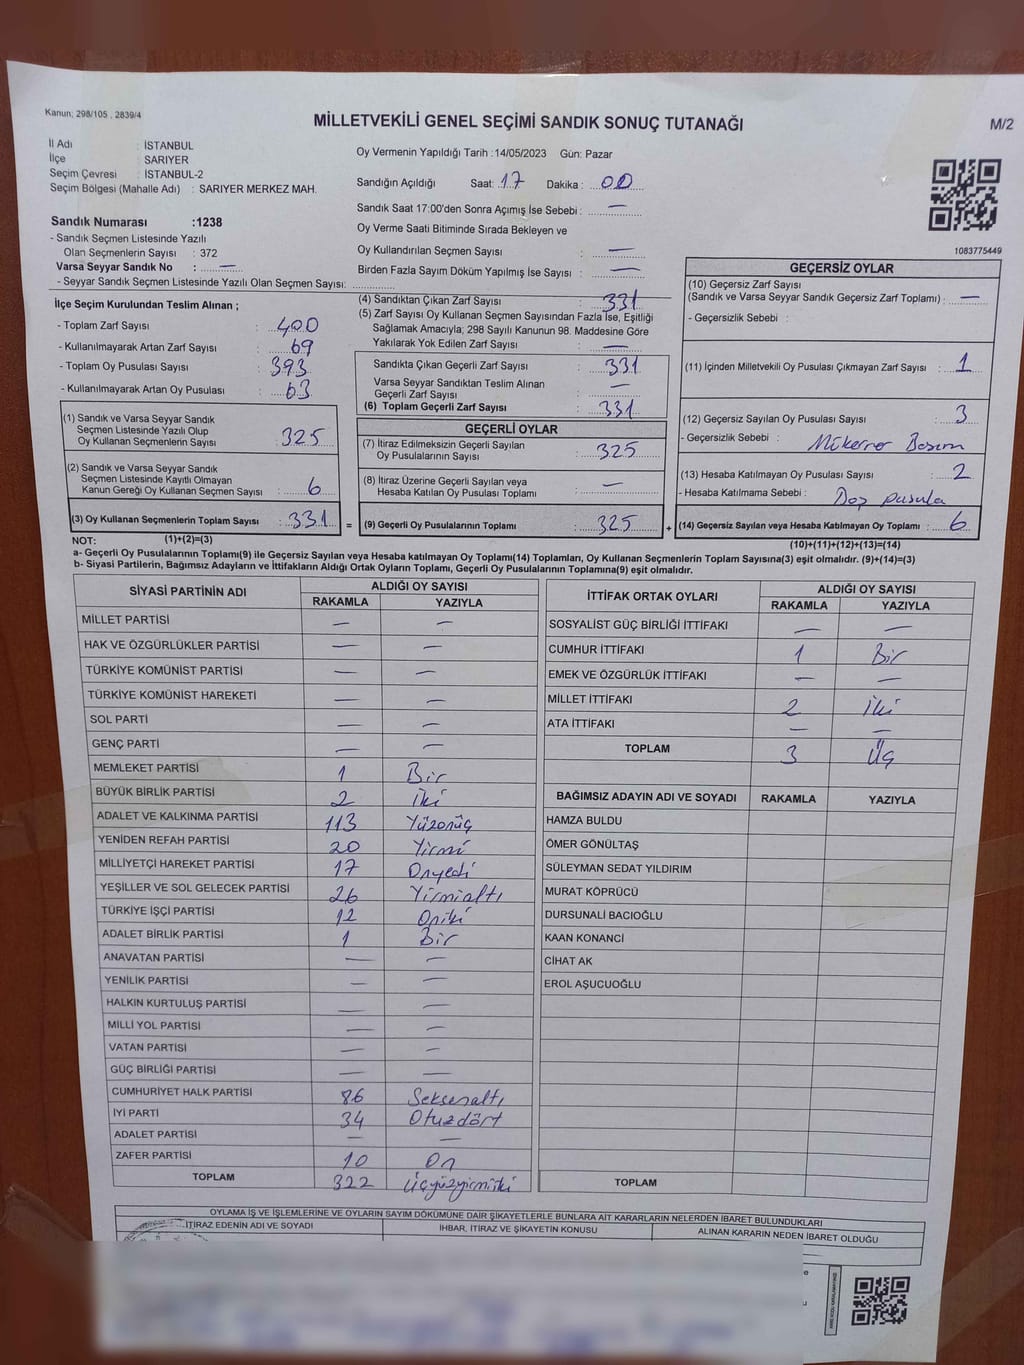 Kanun: 298/105 , 2839/4
MİLLETVEKİLİ GENEL SEÇİMİ SANDIK SONUÇ TUTANAĞI
M/2
İl Adı : İSTANBUL
İlçe SARIYER
Seçim Çevresi : İSTANBUL-2
Seçim Bölgesi (Mahalle Adı) : SARIYER MERKEZ MAH.
Sandık Numarası :1238
- Sandık Seçmen Listesinde Yazılı
Olan Seçmenlerin Sayısı : 372
Varsa Seyyar Sandık No : —
- Seyyar Sandık Seçmen Listesinde Yazılı Olan Seçmen Sayısı:
Oy Vermenin Yapıldığı Tarih :14/05/2023 Gün: Pazar
Sandığın Açıldığı Saat: 17 Dakika : 00
Sandık Saat 17:00'den Sonra Açımış İse Sebebi : —
Oy Verme Saati Bitiminde Sırada Bekleyen ve
Oy Kullandırılan Seçmen Sayısı : —
Birden Fazla Sayım Döküm Yapılmış İse Sayısı : —
1083775449
İlçe Seçim Kurulundan Teslim Alınan ;
- Toplam Zarf Sayısı : 400
- Kullanılmayarak Artan Zarf Sayısı : 69
- Toplam Oy Pusulası Sayısı : 393
- Kullanılmayarak Artan Oy Pusulası : 63
(1) Sandık ve Varsa Seyyar Sandık
Seçmen Listesinde Yazılı Olup
Oy Kullanan Seçmenlerin Sayısı : 325
(2) Sandık ve Varsa Seyyar Sandık
Seçmen Listesinde Kayıtlı Olmayan
Kanun Gereği Oy Kullanan Seçmen Sayısı : 6
(3) Oy Kullanan Seçmenlerin Toplam Sayısı : 331 =
(4) Sandıktan Çıkan Zarf Sayısı : 331
(5) Zarf Sayısı Oy Kullanan Seçmen Sayısından Fazla İse, Eşitliği
Sağlamak Amacıyla; 298 Sayılı Kanunun 98. Maddesine Göre
Yakılarak Yok Edilen Zarf Sayısı : —
Sandıkta Çıkan Geçerli Zarf Sayısı : 331
Varsa Seyyar Sandıktan Teslim Alınan
Geçerli Zarf Sayısı : —
(6) Toplam Geçerli Zarf Sayısı : 331
GEÇERLİ OYLAR
(7) İtiraz Edilmeksizin Geçerli Sayılan
Oy Pusulalarının Sayısı : 325
(8) İtiraz Üzerine Geçerli Sayılan veya
Hesaba Katılan Oy Pusulası Toplamı : —
(9) Geçerli Oy Pusulalarının Toplamı : 325 +
GEÇERSİZ OYLAR
(10) Geçersiz Zarf Sayısı
(Sandık ve Varsa Seyyar Sandık Geçersiz Zarf Toplamı) : —
- Geçersizlik Sebebi :
(11) İçinden Milletvekili Oy Pusulası Çıkmayan Zarf Sayısı : 1
(12) Geçersiz Sayılan Oy Pusulası Sayısı : 3
- Geçersizlik Sebebi : Mükerrer Basım
(13) Hesaba Katılmayan Oy Pusulası Sayısı : 2
- Hesaba Katılmama Sebebi : Boş pusula
(14) Geçersiz Sayılan veya Hesaba Katılmayan Oy Toplamı : 6
NOT: (1)+(2)=(3)
(10)+(11)+(12)+(13)=(14)
a- Geçerli Oy Pusulalarının Toplamı(9) ile Geçersiz Sayılan veya Hesaba katılmayan Oy Toplamı(14) Toplamları, Oy Kullanan Seçmenlerin Toplam Sayısına(3) eşit olmalıdır. (9)+(14)=(3)
b- Siyasi Partilerin, Bağımsız Adayların ve İttifakların Aldığı Ortak Oyların Toplamı, Geçerli Oy Pusulalarının Toplamına(9) eşit olmalıdır.
SİYASİ PARTİNİN ADI ALDIĞI OY SAYISI
RAKAMLA YAZIYLA
MİLLET PARTİSİ — —
HAK VE ÖZGÜRLÜKLER PARTİSİ — —
TÜRKİYE KOMÜNİST PARTİSİ — —
TÜRKİYE KOMÜNİST HAREKETİ — —
SOL PARTİ — —
GENÇ PARTİ — —
MEMLEKET PARTİSİ 1 Bir
BÜYÜK BİRLİK PARTİSİ 2 İki
ADALET VE KALKINMA PARTİSİ 113 Yüzonüç
YENİDEN REFAH PARTİSİ 20 Yirmi
MİLLİYETÇİ HAREKET PARTİSİ 17 Onyedi
YEŞİLLER VE SOL GELECEK PARTİSİ 26 Yirmialtı
TÜRKİYE İŞÇİ PARTİSİ 12 Oniki
ADALET BİRLİK PARTİSİ 1 Bir
ANAVATAN PARTİSİ — —
YENİLİK PARTİSİ — —
HALKIN KURTULUŞ PARTİSİ — —
MİLLİ YOL PARTİSİ — —
VATAN PARTİSİ — —
GÜÇ BİRLİĞİ PARTİSİ — —
CUMHURİYET HALK PARTİSİ 86 Seksenaltı
İYİ PARTİ 34 Otuzdört
ADALET PARTİSİ — —
ZAFER PARTİSİ 10 On
TOPLAM 322 Üçyüzyirmiiki
İTTİFAK ORTAK OYLARI ALDIĞI OY SAYISI
RAKAMLA YAZIYLA
SOSYALİST GÜÇ BİRLİĞİ İTTİFAKI — —
CUMHUR İTTİFAKI 1 Bir
EMEK VE ÖZGÜRLÜK İTTİFAKI — —
MİLLET İTTİFAKI 2 İki
ATA İTTİFAKI — —
TOPLAM 3 Üç
BAĞIMSIZ ADAYIN ADI VE SOYADI RAKAMLA YAZIYLA
HAMZA BULDU
ÖMER GÖNÜLTAŞ
SÜLEYMAN SEDAT YILDIRIM
MURAT KÖPRÜCÜ
DURSUNALİ BACIOĞLU
KAAN KONANCİ
CİHAT AK
EROL AŞUCUOĞLU
TOPLAM
OYLAMA İŞ VE İŞLEMLERİNE VE OYLARIN SAYIM DÖKÜMÜNE DAİR ŞİKAYETLERLE BUNLARA AİT KARARLARIN NELERDEN İBARET BULUNDUKLARI
İTİRAZ EDENİN ADI VE SOYADI İHBAR, İTİRAZ VE ŞİKAYETİN KONUSU ALINAN KARARIN NEDEN İBARET OLDUĞU